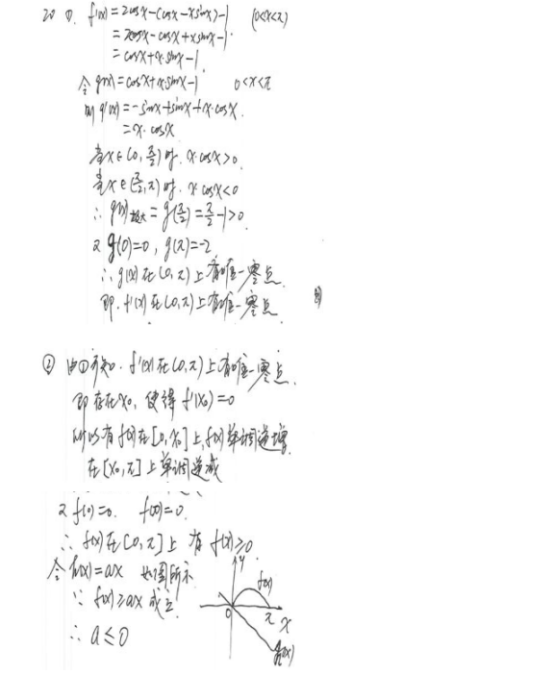 20 ①. f'(x)=2cosx-(cosx-x·sinx)-1 (0<x<π)
=2cosx-cosx+xsinx-1
=cosx+x·sinx-1
令g(x)=cosx+x·sinx-1 0<x<π
则g'(x)=-sinx+sinx+x·cosx.
=x·cosx
当x∈(0,π/2)时. x·cosx>0.
当x∈(π/2,π)时. x cosx<0
∴g(x)极大=g(π/2)=π/2-1>0
又g(0)=0, g(π)=-2
∴g(x)在(0,π)上有唯一零点.
即. f'(x)在(0,π)上有唯一零点.
② 由①可知. f'(x)在(0,π)上有唯一零点.
即存在x₀, 使得f'(x₀)=0
所以有f(x)在[0,x₀]上,f(x)单调递增.
在[x₀,π]上单调递减
又f(0)=0. f(π)=0.
∴f(x)在[0,π]上 有f(x)≥0
令h(x)=ax 如图所示
∵f(x)≥ax成立.
∴a≤0
y
f(x)
0
π
x